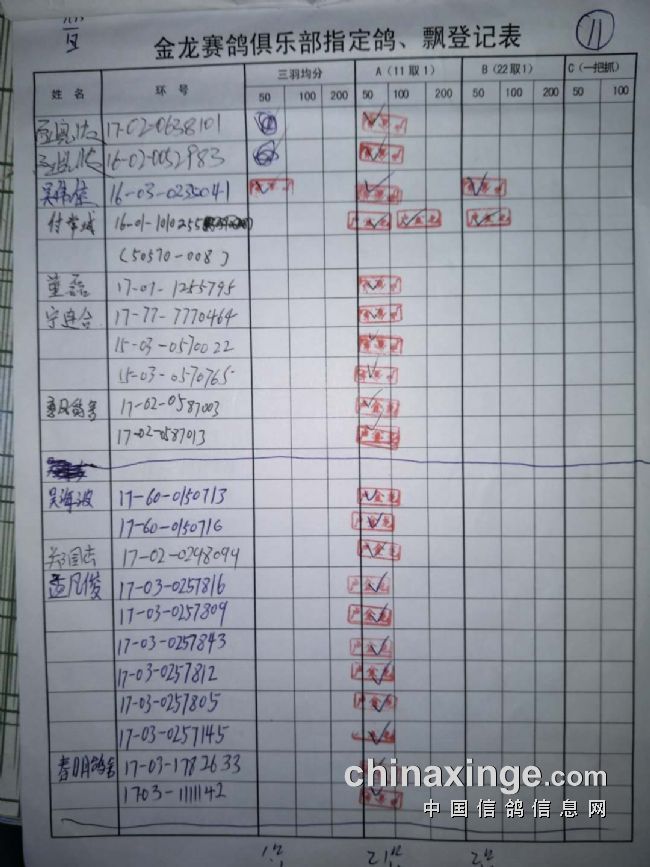 11
金龙赛鸽俱乐部指定鸽、飘登记表
姓 名 环 号 三羽均分 A（11取1） B（22取1） C（一把抓）
50 100 200 50 100 200 50 100 200 50 100
17-02-0638101
16-02-0052983
16-03-0235041
16-01-1010255
(50570-008)
董磊 17-01-1255795
宁连合 17-77-7770464
15-03-0570022
15-03-0570765
17-02-0587003
17-02-0587013
吴海波 17-60-0150713
17-60-0150716
17-02-0248094
孟凡俊 17-03-0257816
17-03-0257809
17-03-0257843
17-03-0257812
17-03-0257805
17-03-0257145
春明鸽舍 17-03-1782633
1703-1111142
chinaxinge.com
中国信鸽信息网